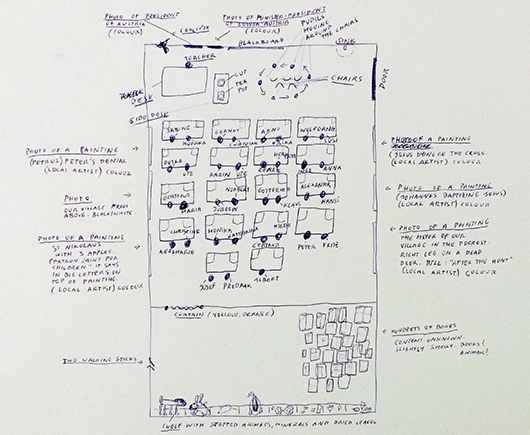 PHOTO OF PRESIDENT
OF AUSTRIA
(COLOUR)
CRUCIFIX
PHOTO OF MINISTER-PRESIDENT
OF LOWER-AUSTRIA
(COLOUR)
BLACKBOARD
PUPILS
MOVING
AROUND
THE CHAIRS
SINK
DOOR
TEACHER
TEACHER
DESK
CUP
TEA
POT
SIDE DESK
CHAIRS
SABINE
GERNOT
ARNO
WOLFGANG
MONIKA
CHRISTIAN
ULRIKA
SUSI
PETRA
UTE
KARIN
UTE
INGE
ANNA
GERTAUD
MARIA
NORBERT
JÜRGEN
GOTTFRIED
KLAUS
ALEXANDER
HANSI
CHRISTINE
ANNEMARIE
MONIKA
KATHARINA
HEIDE
GERTAUD
PETER
FRITZ
JOSEF
PREDRAK
ALBERT
PHOTO OF A PAINTING
(PETRUS) PETER'S DENIAL
(LOCAL ARTIST) (COLOUR)
PHOTO
OUR VILLAGE FROM
ABOVE. BLACK/WHITE.
PHOTO OF A PAINTING
ST. NIKOLAUS
WITH 3 APPLES
(PATRON SAINT FOR
CHILDREN" IT SAYS
IN BIG LETTERS ON
TOP OF PAINTING.
(LOCAL ARTIST) COLOUR
PHOTO OF A PAINTING
JESUS DYING ON THE CROSS.
(LOCAL ARTIST) COLOUR
PHOTO OF A PAINTING
(JOHANNES BAPTIZING JESUS)
(LOCAL ARTIST) COLOUR
PHOTO OF A PAINTING
THE MAYOR OF OUR
VILLAGE IN THE FORREST.
RIGHT LEG ON A DEAD
DEER. TITLE: "AFTER THE HUNT"
(LOCAL ARTIST) COLOUR
CURTAIN (YELLOW, ORANGE)
TWO WALKING STICKS
HUNDRETS OF BOXES
CONTENT UNKNOWN.
SLIGHTLY SMELLY. BOOKS?
ANIMALS?
SHELF WITH STUFFED ANIMALS, MINERALS AND DRIED LEAVES